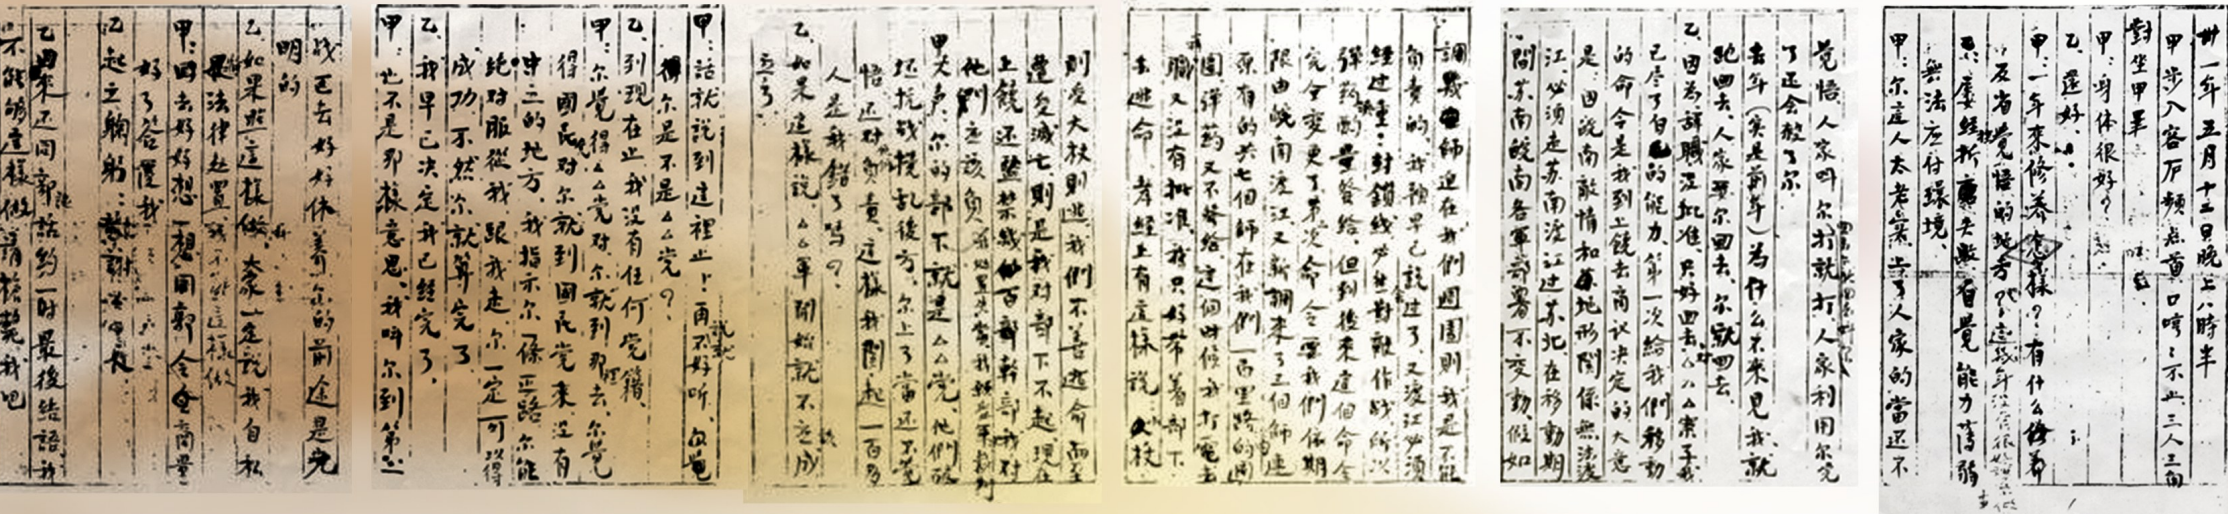 卅一年五月十三日晚上八時半
甲步入客厅頻点首口哼：不止三人三向
對坐甲畢
甲：身体很好？
乙：還好.
甲：一年來修养怎樣？有什么修养
反省覺悟的地方？
乙：屢经折磨失敗有覺能力薄弱
無法应付環境.
甲：尔這人太老寔上了人家的當還不
覓悟.人家叫尔打就打人家利用尔完
了还会殺了尔
去年（实是前年）为什么不來見我就
跑回去.人家要尔回去.尔就回去.
乙.因為辞職没批准.只好回去.△△案子我
已尽了自己的能力.第一次給我們移動
的命令是我到上饒去商议决定的大意
是.因皖南敵情和地形関係無法渡
江.必須走苏南渡江过苏北.在移動期
間苏南皖南各軍部署不变動.假如
調幾個師迫在我們週围則我是不能
負責的.我預早已說过了.又渡江必須
经过重：封鎖线必生對敵作战.所以
彈葯酌量發給.但到後來這個命令
完全变更了.第二次命令要我們依期
限由皖南渡江.又新調來了三個師連
原有的共七個師在我們一百里路的周
圍.彈葯又不發給.這個时候我打電去
辭職又没有批准.我只好带着部下
去逃命.孝经上有這様說.小杖
則受大杖則逃.我們不善逃命而至
遭受滅亡.則是我对部下不起.現在
上饒还監禁幾百部幹部我对
他們应該負
甲大声：尔的部下就是△△党.他們破
坏抗战搅乱後方.尔上了當还不覚
悟.还对負責.這様我関起一百多
人是我錯了嗎？
乙.如果這樣說.△△軍開始就不应成
立了.
甲：話就說到這裡止！再說就不好听.尔覚
得尔是不是△△党？
乙.到現在止我没有任何党籍.
甲：尔覚得△△党对.尔就到那去.尔覚
得國民党对尔就到國民党來.没有
中立的地方.我指示尔一條正路尔能
絶对服從我.跟我走.尔一定可以得
成功.不然尔就算完了.
乙.我早已决定我已经完了.
甲：也不是那様意思.我叫尔到第三
战区去好好休养.尔的前途是光
明的
乙如果照這樣做.大家一定說我自私
最好法律处置.我不能這樣做
甲：回去好好想一想.同郭司令商量
好了答復我
乙起立鞠躬：
乙回來还同郭說話約一时最後結語.我
不能够這樣做.請槍斃我吧